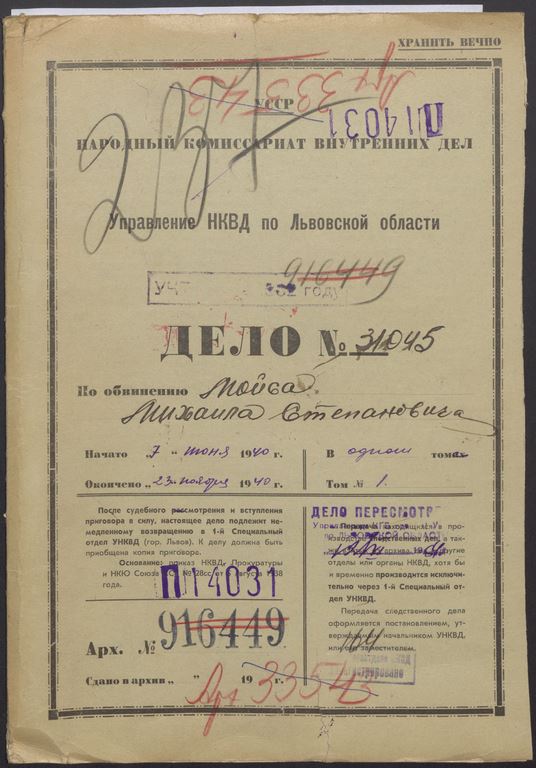 ХРАНИТЬ ВЕЧНО
Арх 33543
УССР
П14031
НАРОДНЫЙ КОМИССАРИАТ ВНУТРЕННИХ ДЕЛ
237
Управление НКВД по Львовской области
916449
УЧТ 52 году
ДЕЛО № 31045
По обвинению Мойса
Михаила Степановича
Начато „ 7 “ июня 1940 г.
Окончено „ 23 “ ноября 1940 г.
В одном томах
Том № 1.
После судебного рассмотрения и вступления
приговора в силу, настоящее дело подлежит не-
медленному возвращению в 1-й Специальный
отдел УНКВД (гор. Львов). К делу должна быть
приобщена копия приговора.
Основание: приказ НКВД, Прокуратуры
и НКЮ Союза
1938
года.
П14031
Арх. № 916449
Сдано в архив „ “ 19 г.
Арх 33543
ДЕЛО ПЕРЕСМОТР
Передача находящихся в про-
изводстве следственных дел, а так-
архива в другие
отделы или органы НКВД, хотя бы
и временно производится исключи-
тельно через 1-й Специальный от-
дел УНКВД.
Передача следственного дела
оформляется постановлением, ут-
верждаемым начальником УНКВД,
или его заместителем.
164